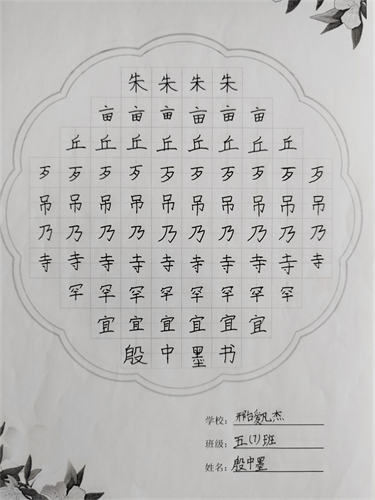 朱朱朱朱
亩亩亩亩亩亩
丘丘丘丘丘丘丘丘
歹歹歹歹歹歹歹歹歹歹
吊吊吊吊吊吊吊吊吊吊
乃乃乃乃乃乃乃乃乃乃
寺寺寺寺寺寺寺寺寺寺
罕罕罕罕罕罕罕罕
宜宜宜宜宜宜
殷中墨书
学校：邢台爱凡杰
班级：五(7)班
姓名：殷中墨